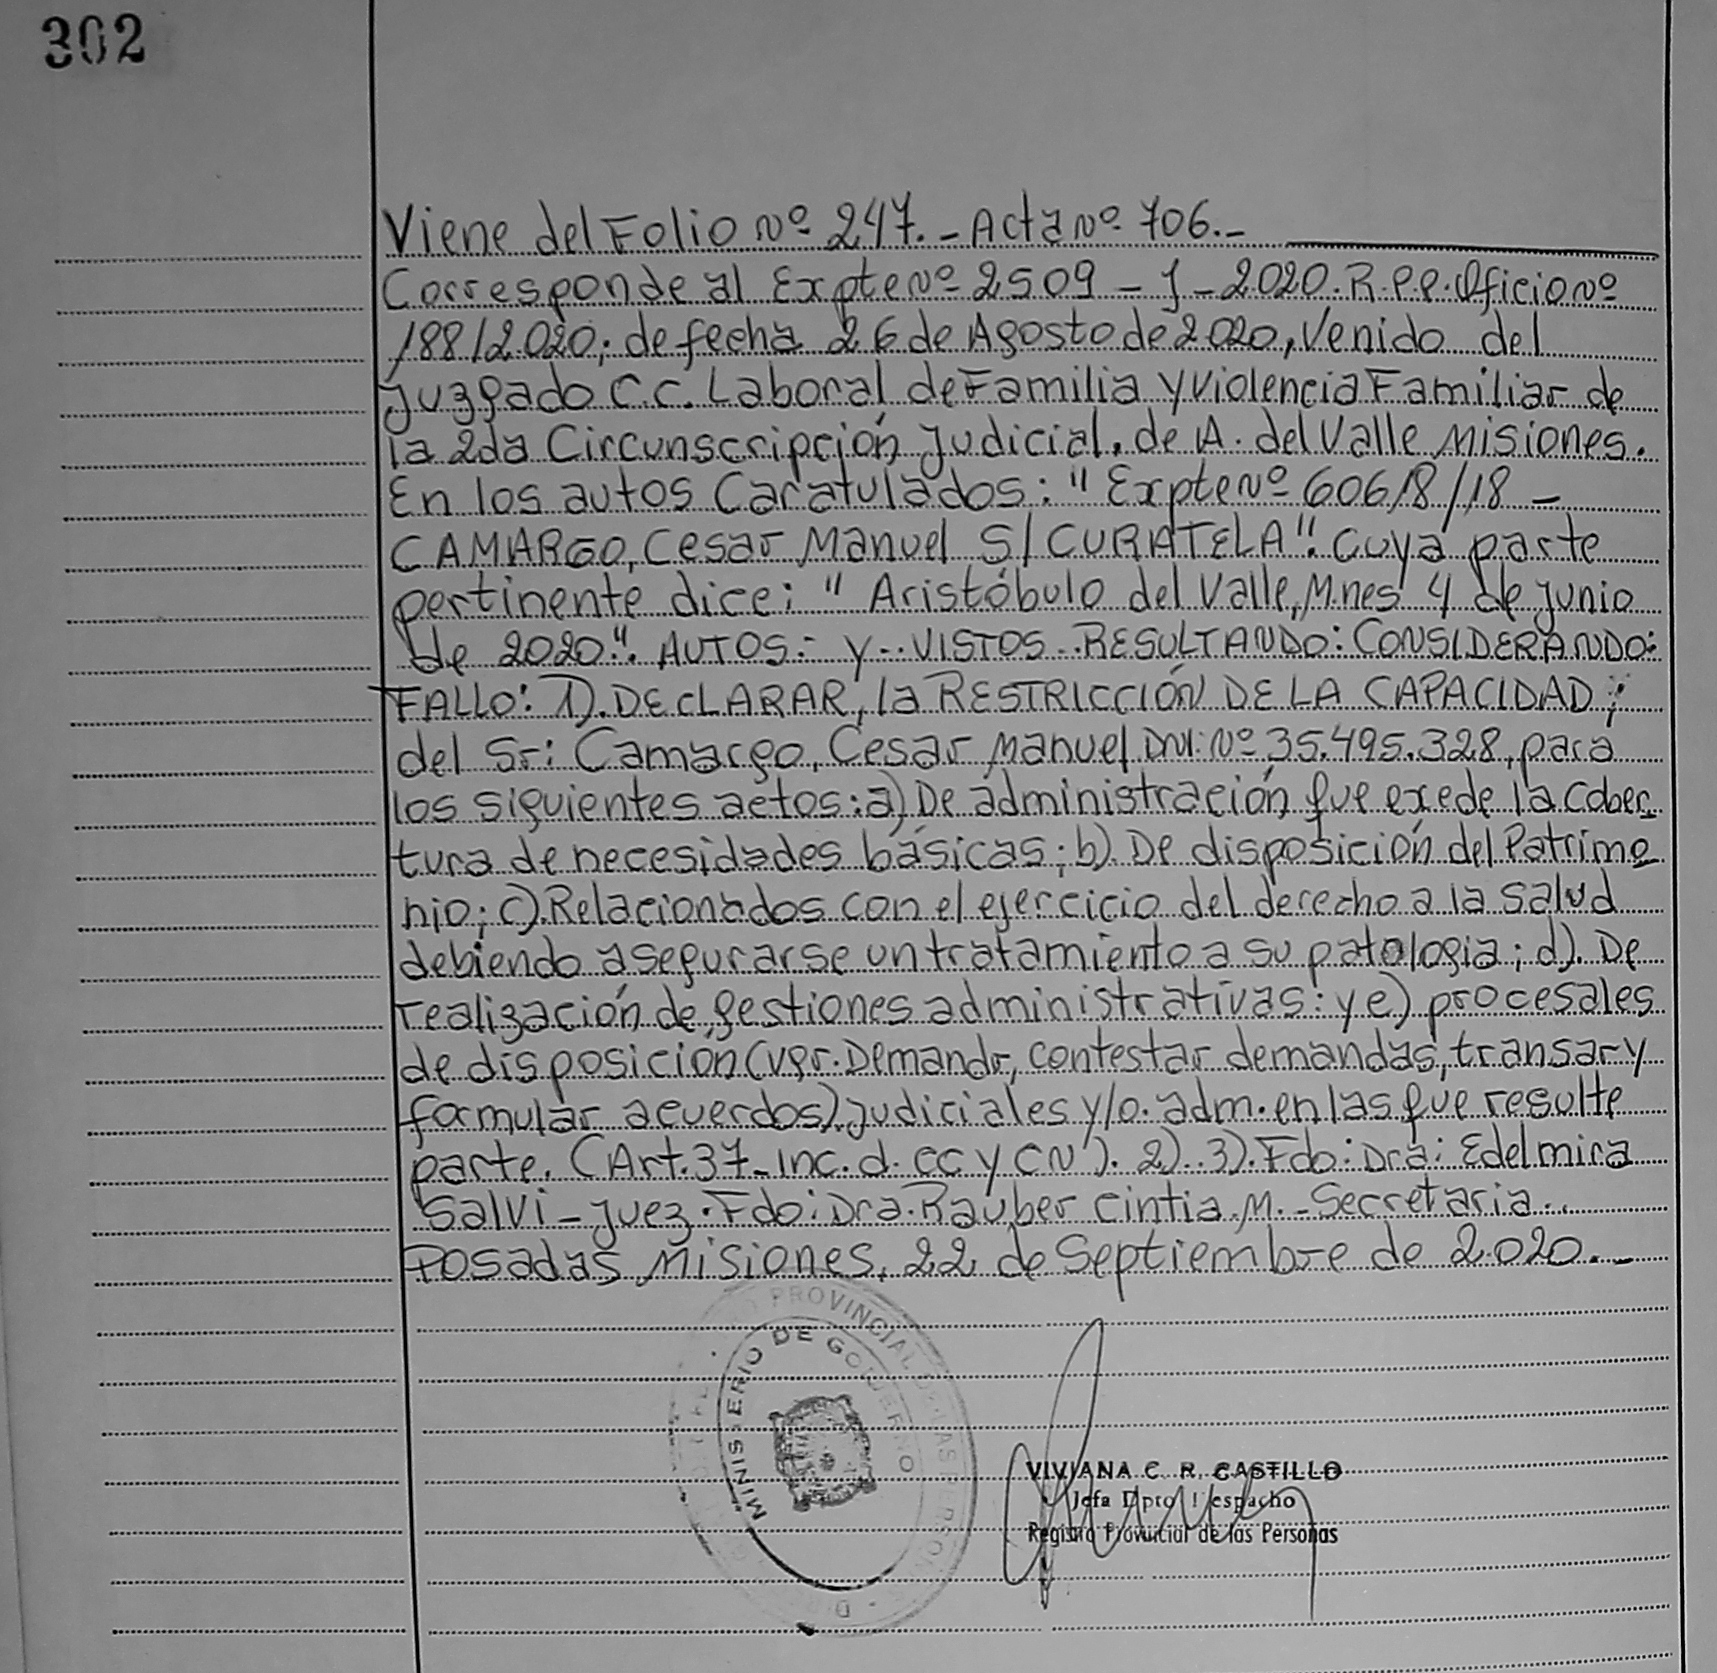 302
Viene del Folio Nº 247.- Acta Nº 706.-
Corresponde al Expte Nº 2509 - J - 2020. R.P.P. Oficio Nº
188/2020; de fecha 26 de Agosto de 2020, Venido del
Juzgado C.C. Laboral de Familia y Violencia Familiar de
la 2da Circunscripción Judicial, de A. del Valle Misiones.
En los autos Caratulados: " Expte Nº 60618/18 -
CAMARGO, Cesar Manuel S/ CURATELA". Cuya parte
pertinente dice: " Aristóbulo del Valle, Mnes 4 de junio
de 2020". AUTOS: y .. VISTOS.. RESULTANDO: CONSIDERANDO:
FALLO: 1). DECLARAR, la RESTRICCIÓN DE LA CAPACIDAD;
del Sr: Camargo, Cesar Manuel DNI: Nº 35.495.328, para
los siguientes actos: a) De administración que exede la Cober
tura de necesidades básicas; b). De disposición del Patrimo
nio; c). Relacionados con el ejercicio del derecho a la salud
debiendo asegurarse un tratamiento a su patologia; d). De
realización de gestiones administrativas: y e) procesales
de disposición (vgr. Demandar, contestar demandas, transar y
formular acuerdos) judiciales y/o. adm. en las que resulte
parte. (Art. 37 - Inc. d. CC y CN). 2).. 3). Fdo: Dra: Edelmira
Salvi - Juez. Fdo: Dra. Rauber Cintia. M. - Secretaria...
Posadas Misiones, 22 de Septiembre de 2020.-
PROVINCIAL DE LAS PERSONAS
MINISTERIO DE GOBIERNO
VIVIANA C. R. CASTILLO
Jefa Dpto Despacho
Registro Provincial de las Personas